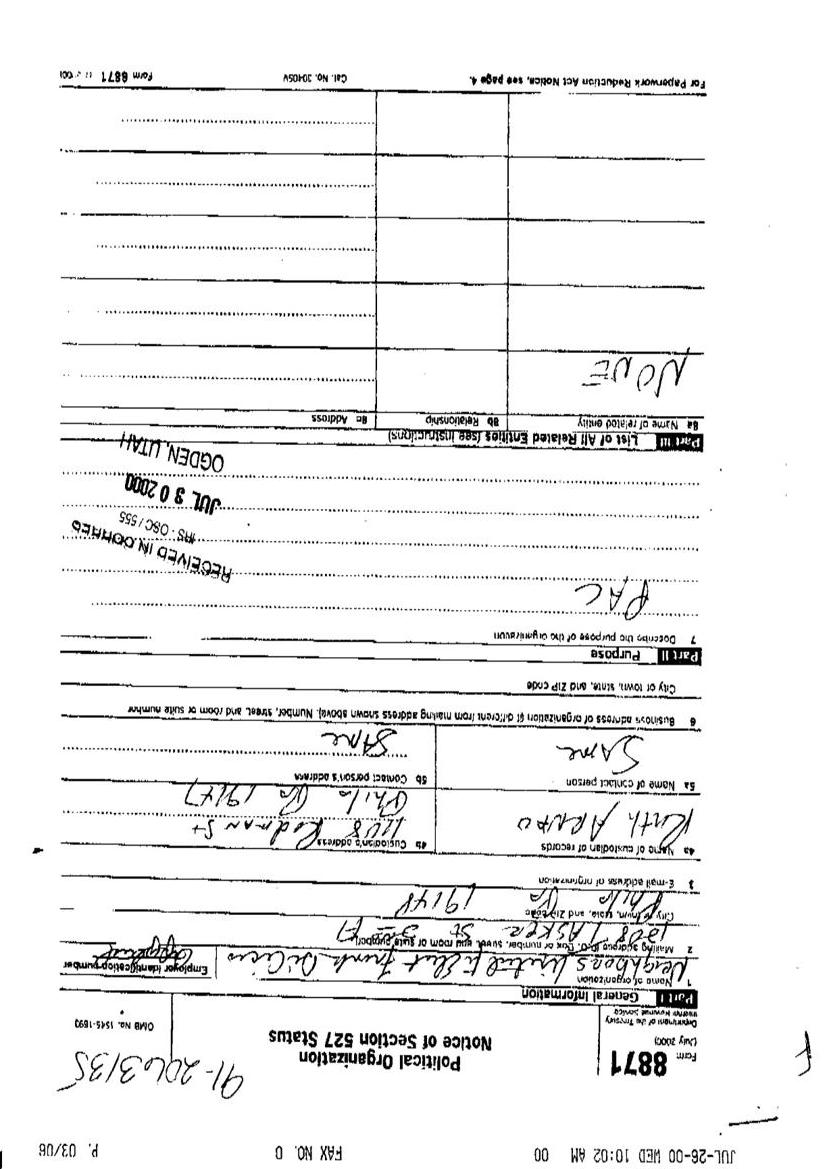 JUL-26-00 WED 10:02 AM 00 FAX NO. 0 P. 03/06
F
91-2063135
Form 8871
(July 2000)
Department of the Treasury
Internal Revenue Service
Political Organization
Notice of Section 527 Status
OMB No. 1545-1693
Part I General Information
1 Name of organization
Neighbors United to Elect Frank DiCicco
Employer identification number
applied
2 Mailing address (P.O. Box or number, street, and room or suite number)
1208 TASKER St
City or town, state, and ZIP code
Phila Pa 19148
3 E-mail address of organization
4a Name of custodian of records
Ruth ARNAO
4b Custodian's address
1108 Redman St
Phila Pa 19147
5a Name of contact person
SAMe
5b Contact person's address
SAMe
6 Business address of organization (if different from mailing address shown above). Number, street, and room or suite number
City or town, state, and ZIP code
Part II Purpose
7 Describe the purpose of the organization
PAC
RECEIVED IN CORRES
IRS - OSC / 555
JUL 30 2000
OGDEN, UTAH
Part III List of All Related Entities (see instructions)
8a Name of related entity 8b Relationship 8c Address
NONE
For Paperwork Reduction Act Notice, see page 4. Cat. No. 30405V Form 8871